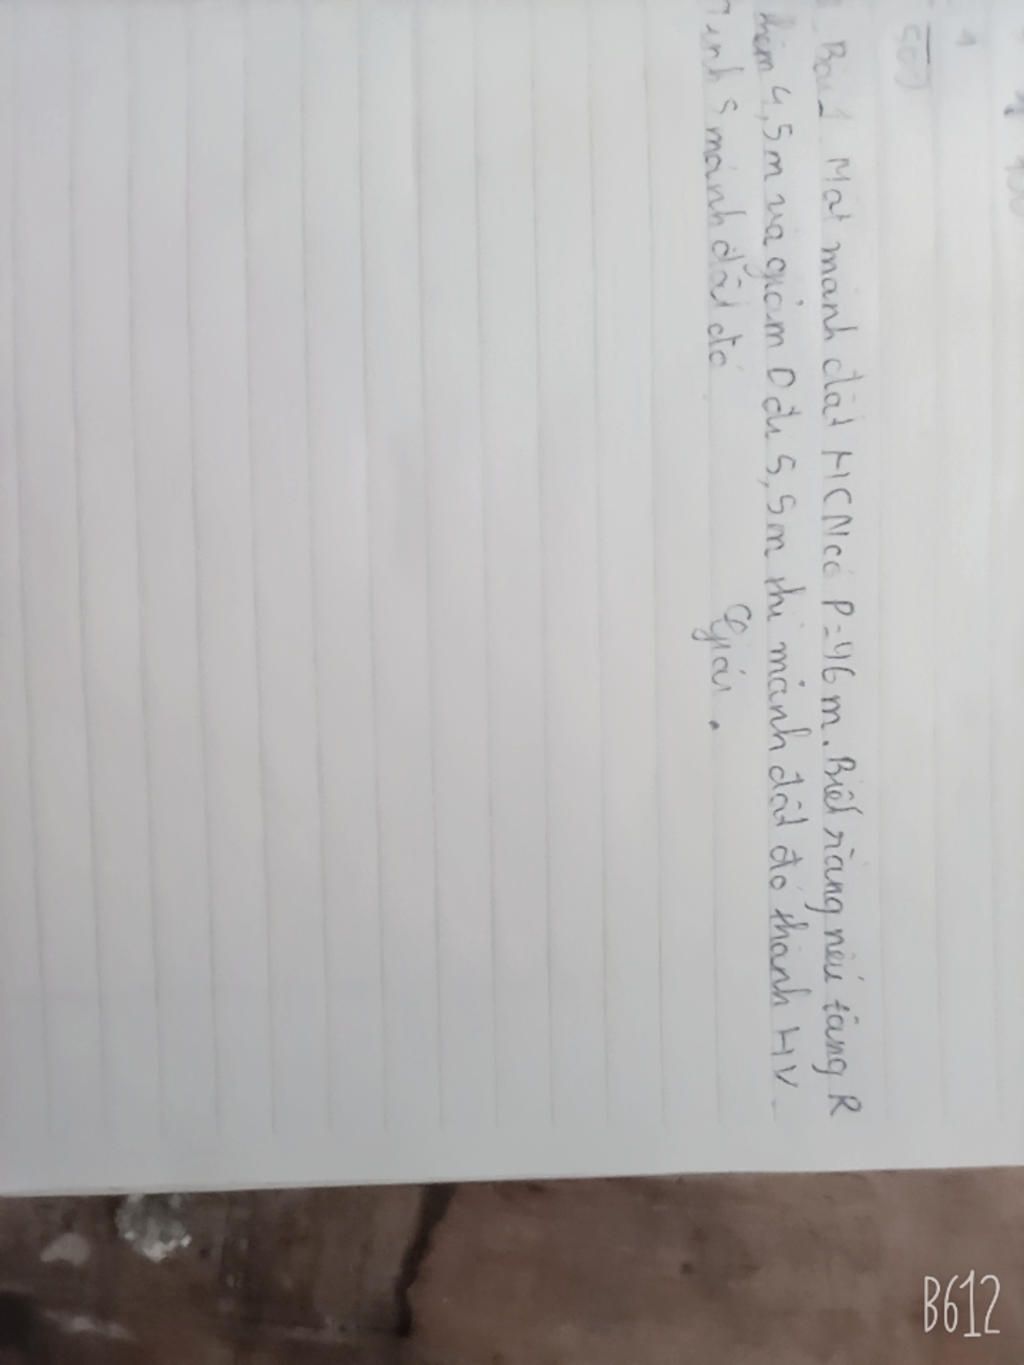 Bài 1 Một mảnh đất HCN có P=46 m. Biết rằng nếu tăng R
thêm 4,5m và giảm D đi 5,5m thì mảnh đất đó thành HV.
Tính S mảnh đất đó
Giải.
B612